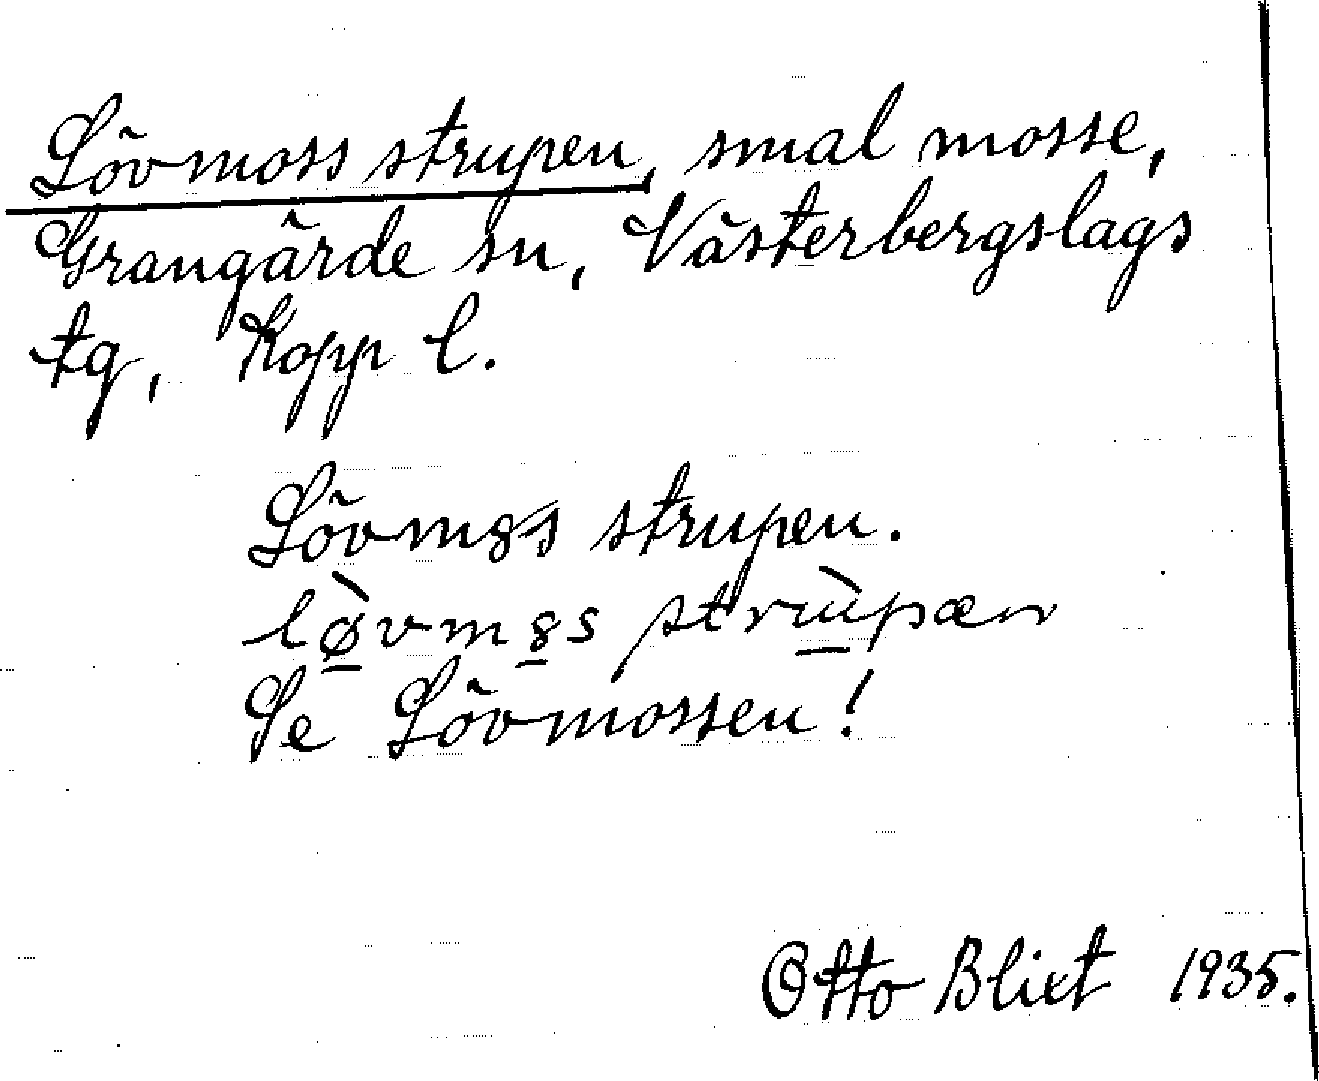 Lövmossstrupen, smal mosse,
Grangärde sn, Västerbergslags
tg, Kopp l.
Lövmȣs strupen.
lø̠̀vmȣ̠s strɯ̠̀pæn
Se Lövmossen!
Otto Blixt 1935.